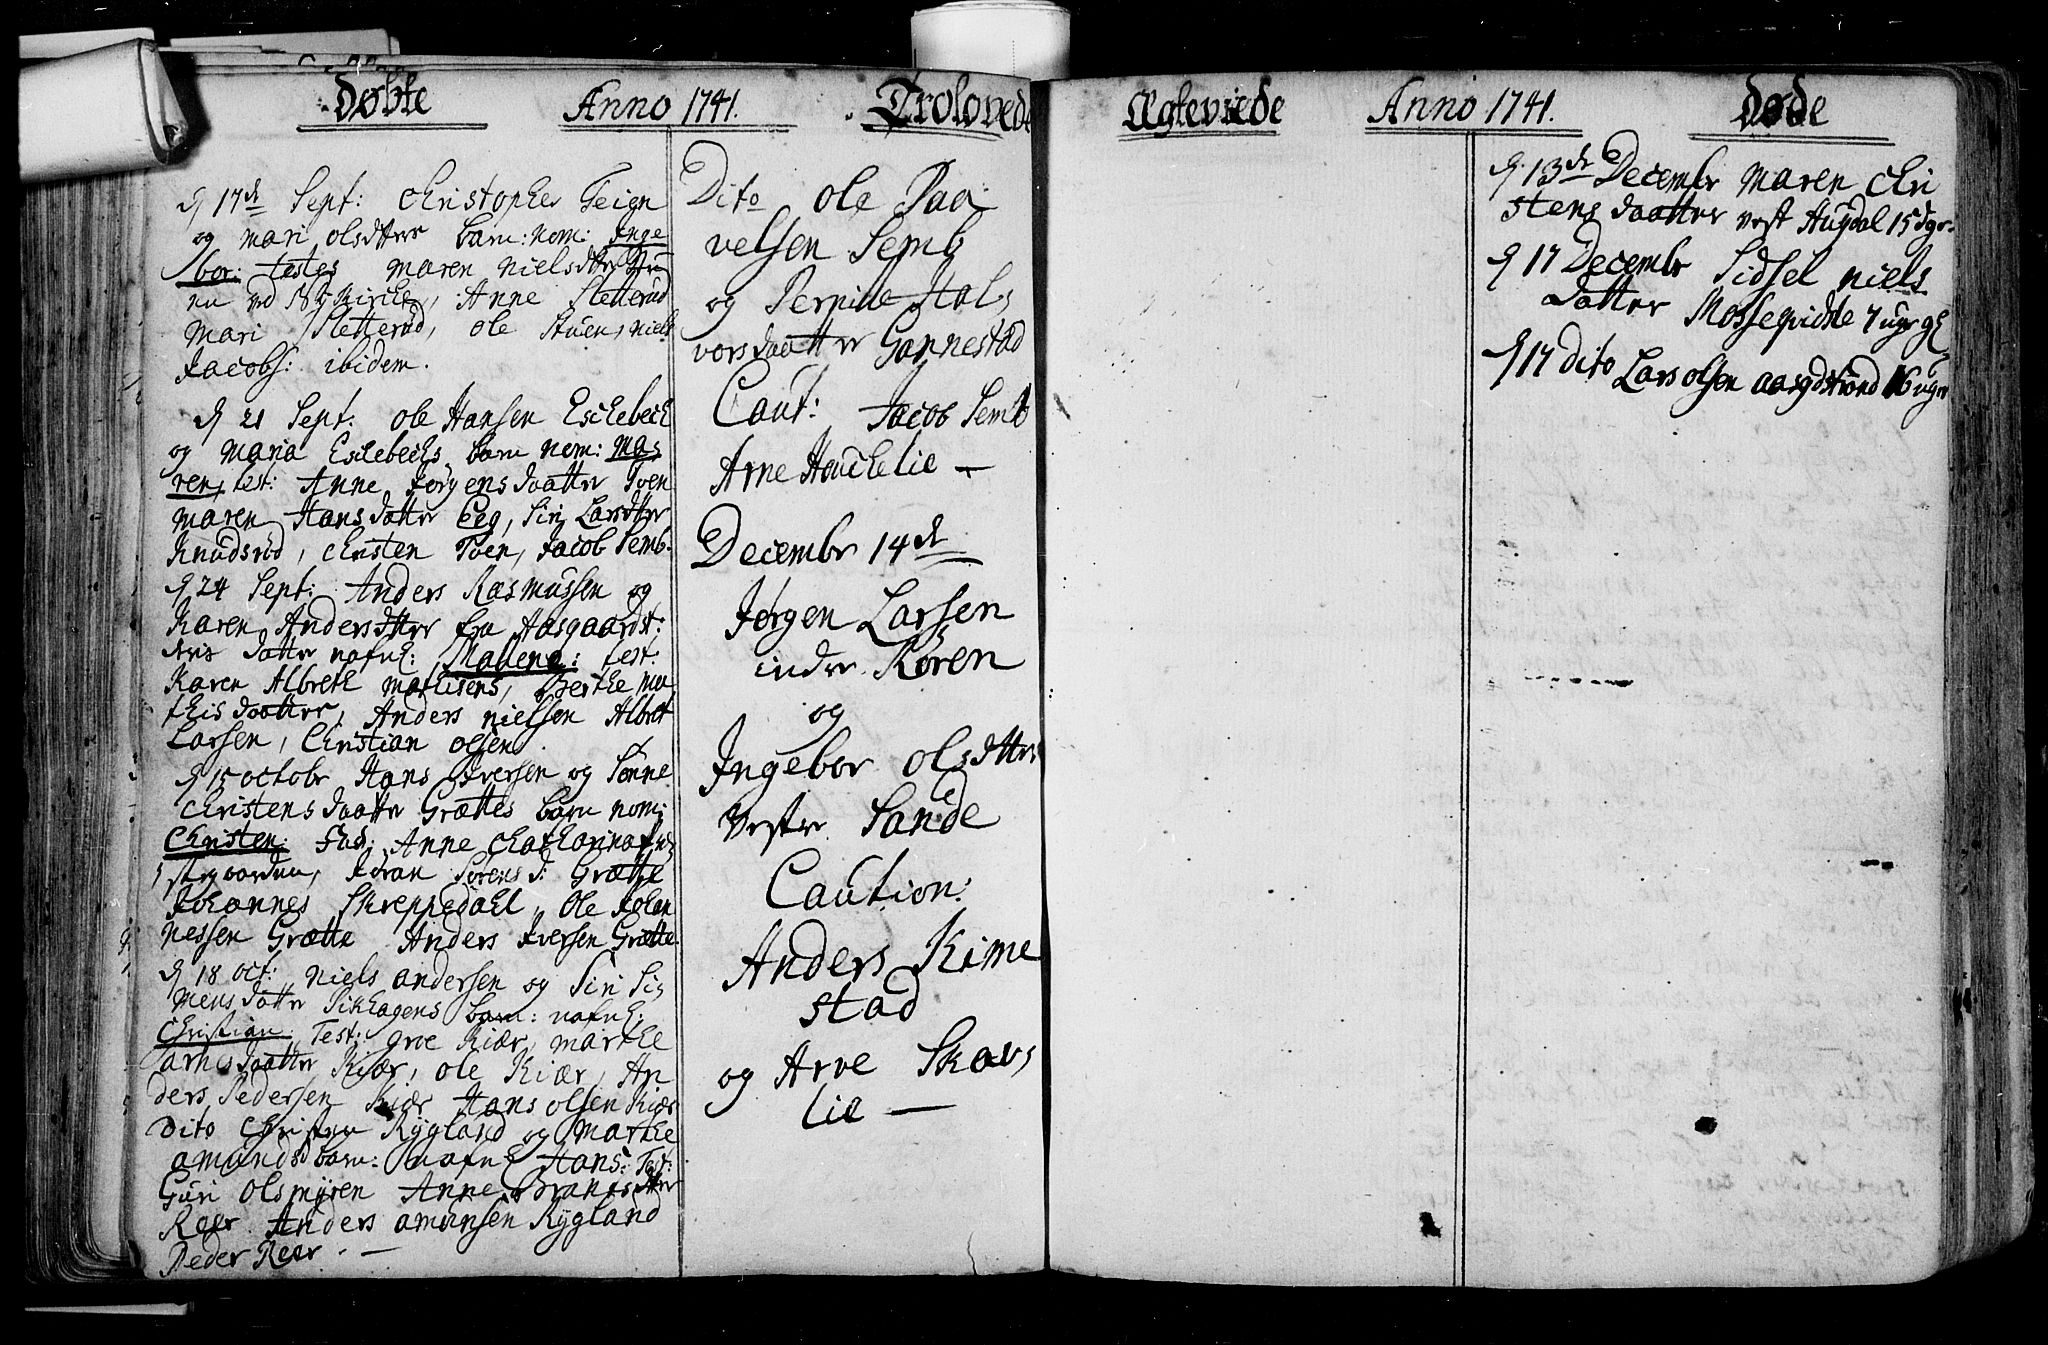 Døbte
Anno 1741.
Trolovede
d 17de Sept: Christopher Teien
og Mari olsdtters barn: nom: Inge
bor: testes Maren Nielsdtter
Kirche, Anne Sletterud
Mari Sletterød, ole Stuen, niels
Jacobs: ibidem.
d 21 Sept: ole Hansen Eschebech
og Maria Eschebechs barn nom: Ma
ren, test: Anne Jørgensdaatter Toen
maren Hansdatter Eeg, Siri Larsdtter
Knudsrød, Christen Toen, Jacob Semb.
d 24 Sept: Anders Rasmussen og
Karen Andersdtter fra Aasgaardst:
dris datter nafnl: Mallene: test:
Karen Albreth Mathisens, Berthe Ma
thisdaatter, Anders Nielsen Albret
Larsen, Christian olsen
d 15 octobr Hans Iversen og Sønne
Christensdaatter Grættes barn nom:
Christen: Fad: Anne Chatharina
Jøran Sørens d: Grætte
Johannes Skreppedahl, Ole Johan
nessen Grætte Anders Iversen Grætte.
d 18 oct: Niels andersen og Siri Si
mensdatter Sikhagens barn: nafnl:
Christian Test: groe Kiær, marthe
arnesdaatter Kiær, ole Kiær, An
ders Pedersen Kiær Hans olsen Kiær
Dito Christen Rygland og Marthe
amunds barn: nafnl Hans: Test:
Guri Olsmyren Anne Brantsdtter
Reer Anders amunsen Rygland
Peder Reer. —
Dito ole Paa
velsen Semb
og Pernille Hal
vorsdaatter Gannestad
Caut: Jacob Semb
Arne Houchelie —
Decembr 14de
Jørgen Larsen
indre Røren
og
Ingebor olsdtter
Vestre Sande
Caution:
Anders Kime
stad
og Arve Skavs
lie —
Ægteviede
Anno 1741.
døde
d. 13de Decembr Maren Chri
stensdaatter vest Hugdal 15 dgr.
d 17 Decembr Sidsel niels
datter Mosseqvidste 7 ugr gl
d 17 Dito Lars olsen aasgdstrand 16 ugr